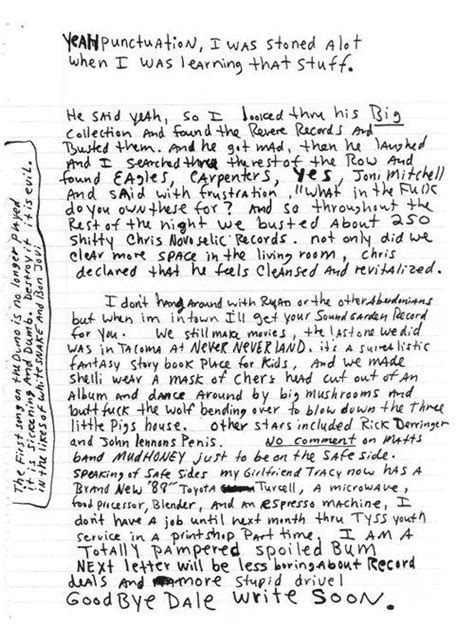 YEAH PUNCTUATION, I WAS STONED A lOT
WHEN I WAS lEARNING THAT STUFF.
He SAID YEAH, SO I looked thru his Big
Collection AND found the Revere Records AND
Busted them. AND he got mAD, then he laughed
AND I searched thru the rest of the Row AND
found EAgles, CARpenters, YES, Joni Mitchell
AND SAID with frustration, "What in the Fuck
do you own these for? AND so throughout the
Rest of the night we busted About 250
Shitty Chris Novoselic Records. not only did we
cleAr more SPACE in the living room, chris
declared that he feels Cleansed And revitalized.
The First song on the Demo is no longer played
it is sickening And Dumb. Destroy it it is evil.
in the likes of WHITESNAKE and Bon Jovi
I don't hang Around with RyAn or the other Aberdonians
but when im in town I'll get your SoundGarden Record
for You. We still make movies, the last one we did
was in TAcoma At NEVER NEVERLAND. it's A surrealistic
fantasy story book Place for Kids, And we made
Shelli weAr A MASK of Cher's head cut out of An
Album and dance Around by big mushrooms And
buttfuck the wolf bending over to blow down the three
little Pigs house. Other stars included Rick Derringer
and John lennons Penis. NO comment on MAtts
band MUDHONEY just to be on the SAfe side.
SPEAKING of SAFE Sides my Girlfriend Tracy now has A
BRAND New '88" Toyota Turcell, A microwave,
food processor, Blender, And an ESPRESSO machine, I
don't have A job until next month thru TYSS youth
service in A printshop Part time, I AM A
TOTALLY PAMPERED SPOILED BUM
NEXT letter will be less boring About Record
deAls And more stupid drivel
GOODBYE DALE WRITE SOON.